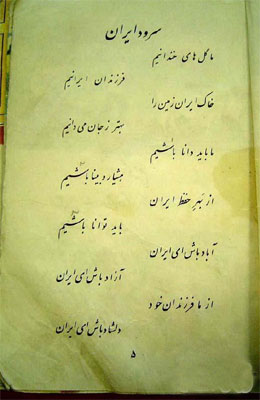 سرود ایران
ما گل های خندانیم
فرزندان ایرانیم
خاک ایران زمین را
بهتر ز جان می دانیم
ما باید دانا باشیم
هشیار و بینا باشیم
از بهر حفظ ایران
باید توانا باشیم
آباد باش ای ایران
آزاد باش ای ایران
از ما فرزندان خود
دلشاد باش ای ایران
۵